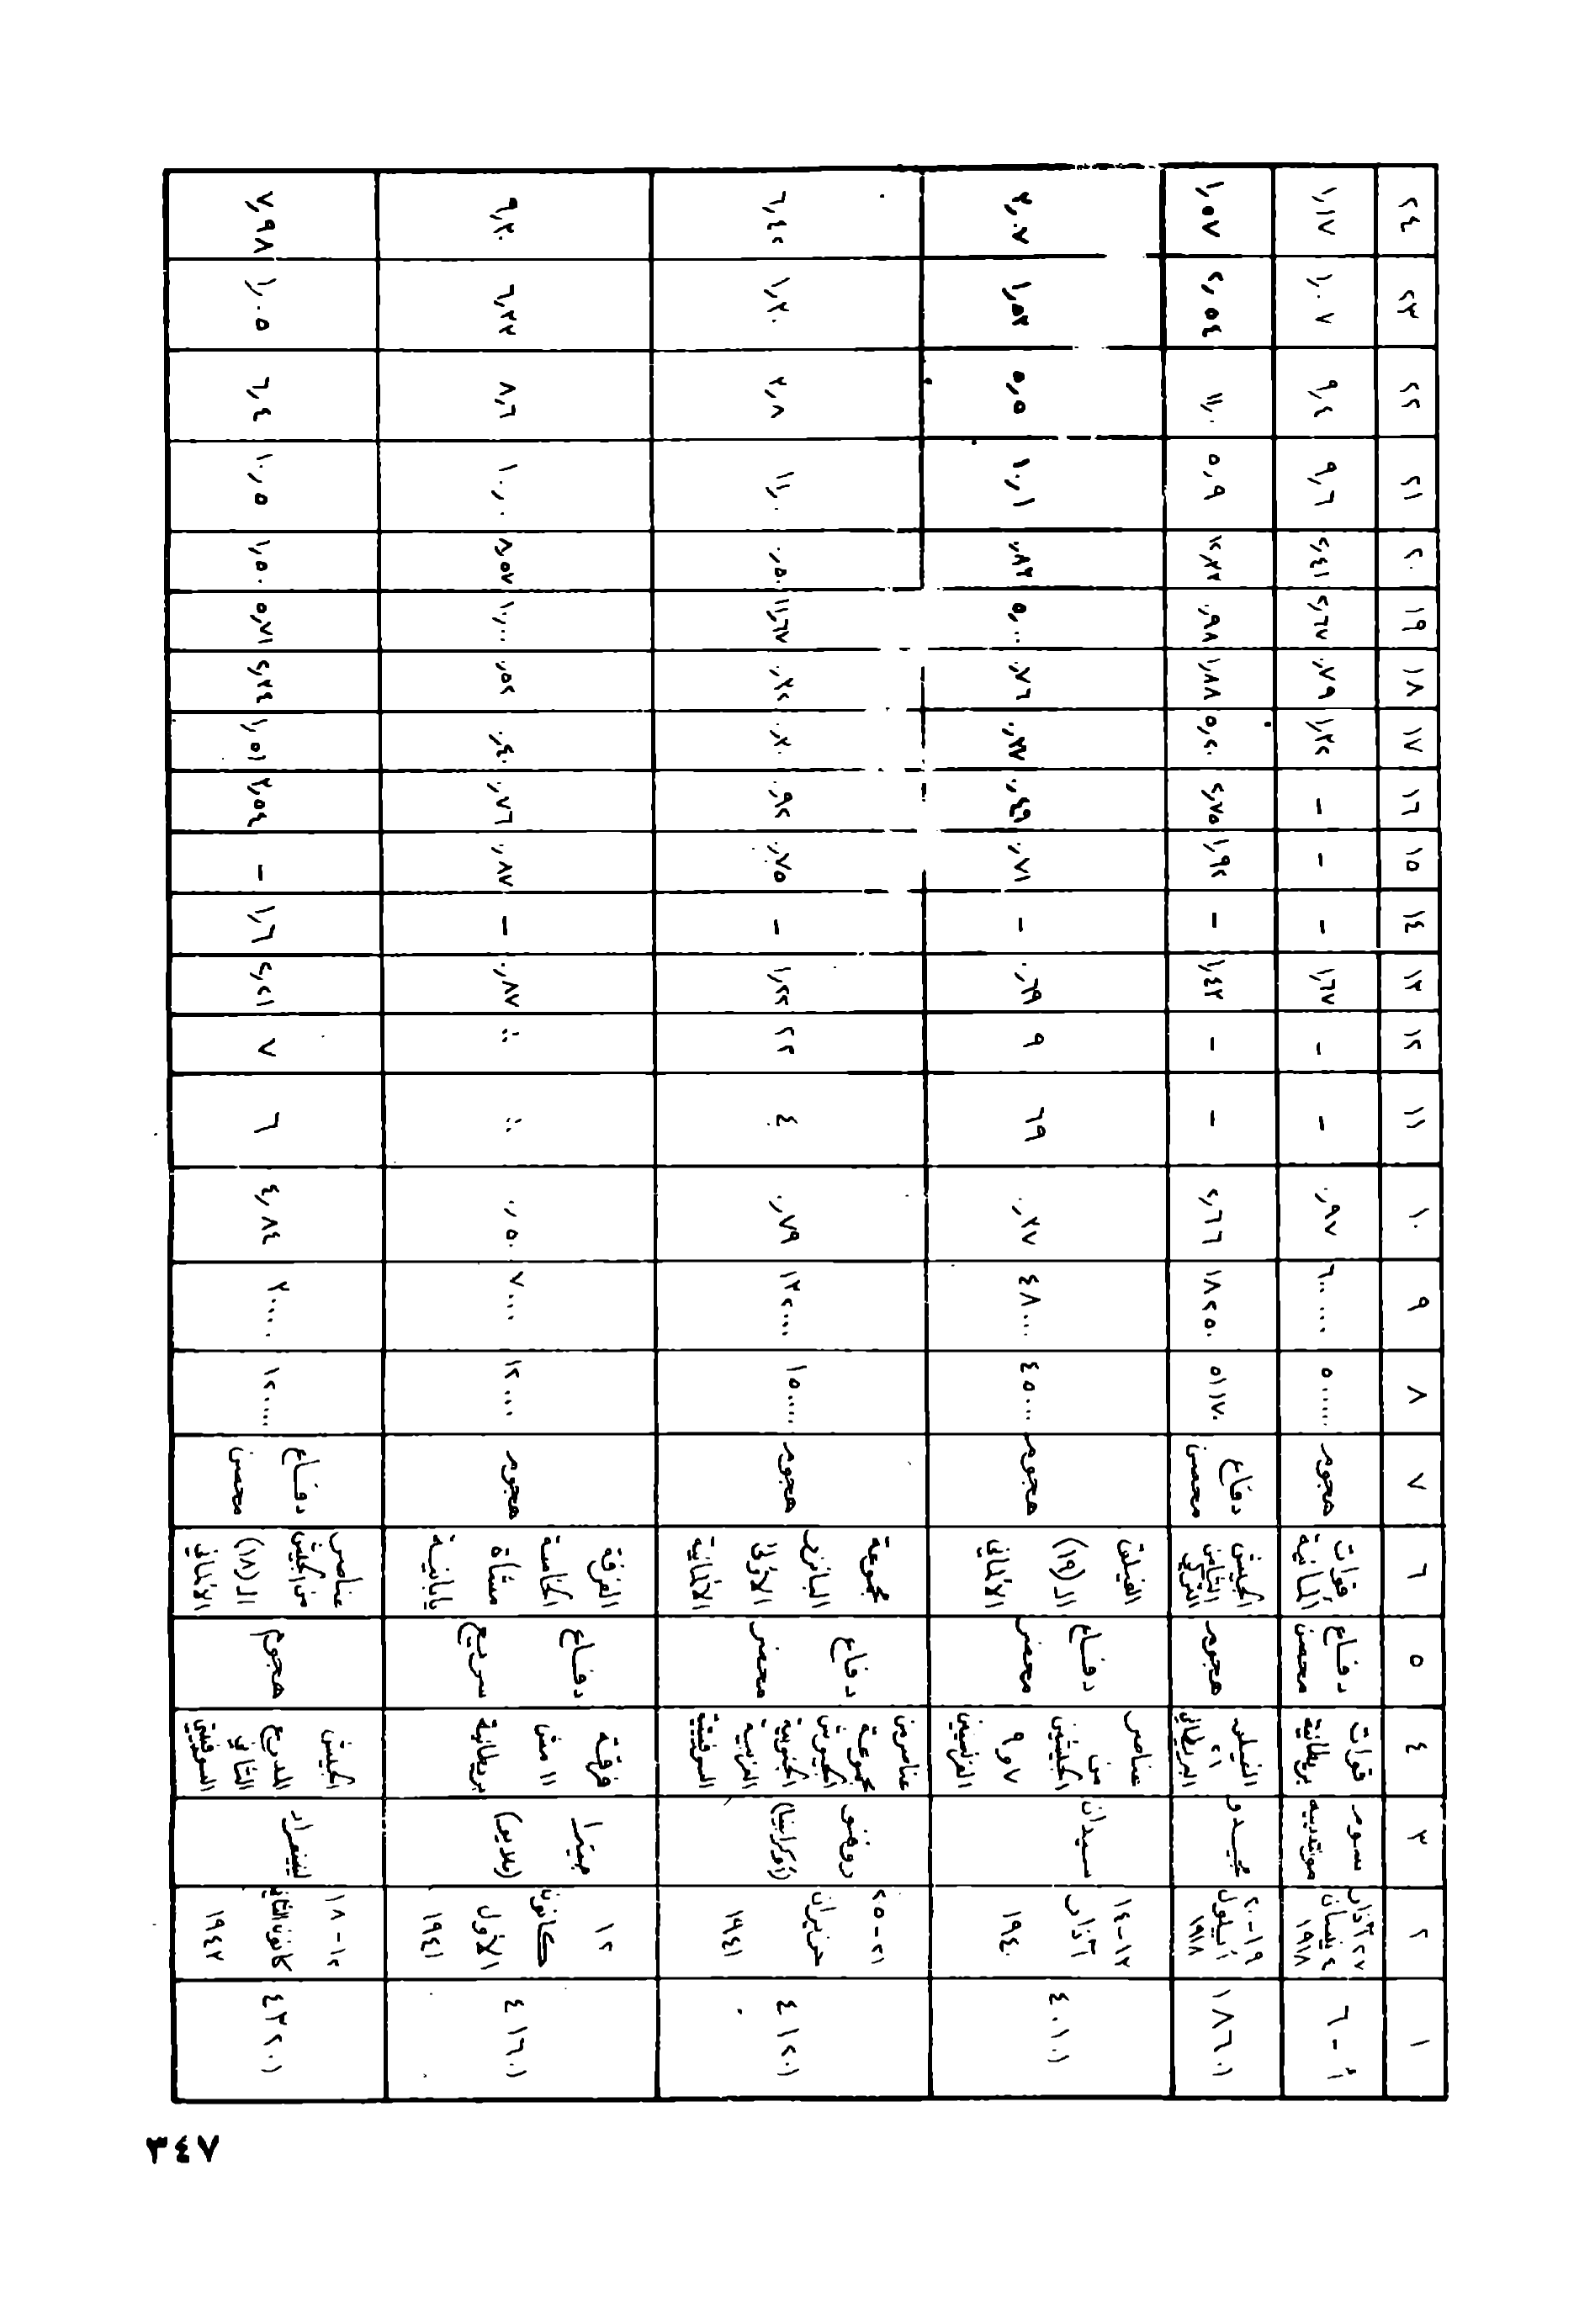 ١ ٢ ٣ ٤ ٥ ٦ ٧ ٨ ٩ ١٠ ١١ ١٢ ١٣ ١٤ ١٥ ١٦ ١٧ ١٨ ١٩ ٢٠ ٢١ ٢٢ ٢٣ ٢٤
أ - ٦ ٢٧ آذار ٤ نيسان ١٩١٨ سوم مونتدييه قوات بريطانية دفاع محصن قوات ألمانية هجوم ٥٠٠٠٠٠ ٦٠٠٠٠٠ ٠,٩٧ - - ١,٦٧ - - - ١,٣٢ ٠,٧٩ ٢,٦٧ ٢,٤١ ٩,٦ ٩,٤ ١,٠٧ ١,١٧
١٨٦٠١ ١٩-٢٠ أيلول ١٩١٨ مجيدو الفيلق ٢١ البريطاني هجوم الجيش الثامن التركي دفاع محصن ٥١١٧٠ ١٨٢٥٠ ٢,٦٦ - - ١,٤٣ - ١,٩٢ ٢,٧٥ ٥,٢٠ ١,٨٨ ٠,٩٨ ٥,٩ ١١,٠ ٢,٥٤ ١,٥٧
٤٠١٠١ ١٣-١٤ آذار ١٩٤٠ سيدان عناصر من الجيشين ٧ و ٩ الفرنسيين دفاع محضر الفيلق الـ(١٩) الألماني هجوم ٤٥٠٠٠ ٤٨٠٠٠ ٠,٣٧ ٦٩ ٩ ٠,٦٩ - ٠,٧١ ٠,٤٩ ٠,٣٧ ٠,٧٦ ٥,٠٠ ٠,٨٣ ١٠,١ ٥,٥ ١,٥٣ ٣,٠٧
٤١٢٠١ ٢١-٢٥ حزيران ١٩٤١ روفنو (أوكرانيا) عناصر من مجموعة الجيوش الجنوبية الغربية السوفيتية دفاع محضر مجموعة البانزر الأولى الألمانية هجوم ١٥٠٠٠٠ ١٣٢٠٠٠ ٠,٧٩ ٤ ٢٢ ١,٢٢ - ٠,٧٥ ٠,٩٢ ٠,٣٠ ٠,٣٢ ١١,٦٧ ٠,٥٠ ١١,٠ ٣,٨ ١,٣٠ ٦,٤٢
٤١٦٠١ ١٢ كانون الأول ١٩٤١ جيترا (ملايو) فرقة ١١ مش بريطانية دفاع سريع الفرقة الخامسة مشاة يابانية هجوم ١٢٠٠٠ ٧٠٠٠ ٠,٥٠ ٠,٨٧ - ٠,٨٧ ٠,٧٦ ٠,٤٠ ٠,٥٢ ١٠,٠٠ ٨,٥٧ ١٠,٠ ٨,٦ ٦,٣٣ ٩,٣٠
٤٣٢٠١ ١٢-١٨ كانون الثاني ١٩٤٣ ليننغراد الجيش المدرع الثاني السوفيتي هجوم عناصر من الجيش الـ(١٨) الألماني دفاع محصن ١٢٠٠٠٠ ٣٠٠٠٠ ٤,٨٤ ٦ ٧ ٢,٢١ ١,٦ - ٣,٥٤ ١,٥١ ٢,٣٤ ٥,٧١ ١,٥٠ ١٠,٥ ٦,٤ ١,٠٥ ٧,٩٨
٣٤٧